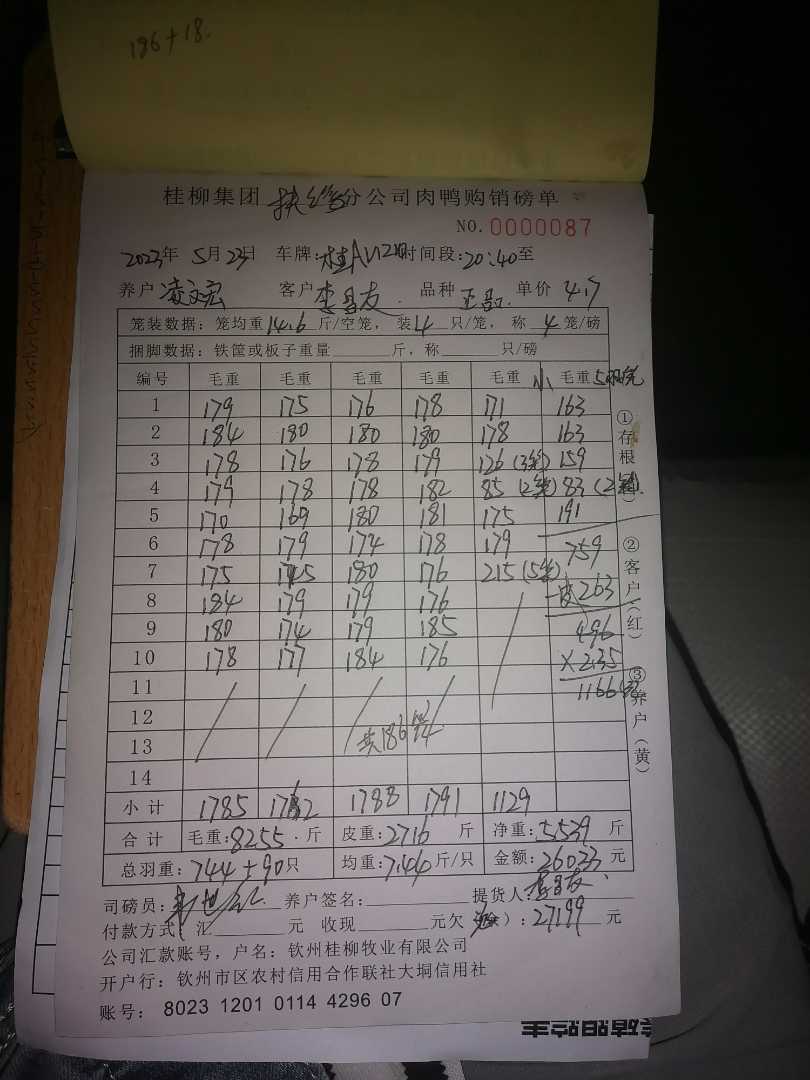 196+18.
桂柳集团 扶绥分公司肉鸭购销磅单
NO. 0000087
2023年 5月23日 车牌:桂A 时间段:20:40至
养户 凌文宏 客户 李昌友. 品种 单价 4.7
笼装数据: 笼均重14.6斤/空笼, 装4只/笼, 称4笼/磅
捆脚数据: 铁筐或板子重量 斤, 称 只/磅
编号 毛重 毛重 毛重 毛重 毛重 小 毛重 5只/笼
1 179 175 176 178 171 163
2 184 180 180 180 178 163
3 178 176 178 179 126(3笼) 159
4 179 178 178 182 85(2笼) 83(2笼)
5 170 169 180 181 175 191
6 178 179 174 178 179 759
7 175 175 180 176 215(5笼) -皮263
8 184 179 179 176
9 180 174 179 185 496
10 178 177 184 176 ×2.35
11 1166
12
13 共186笼
14
小计 1785 1762 1788 1791 1129
合计 毛重:8255.斤 皮重:2716 斤 净重:5539 斤
总羽重:744+90只 均重:7.44斤/只 金额:26033元
司磅员: 养户签名: 提货人:李昌友.
付款方式:汇 元 收现 元欠 ):27199 元
公司汇款账号, 户名: 钦州桂柳牧业有限公司
开户行: 钦州市区农村信用合作联社大垌信用社
账号: 8023 1201 0114 4296 07
①存根
②客户(红)
③养户(黄)